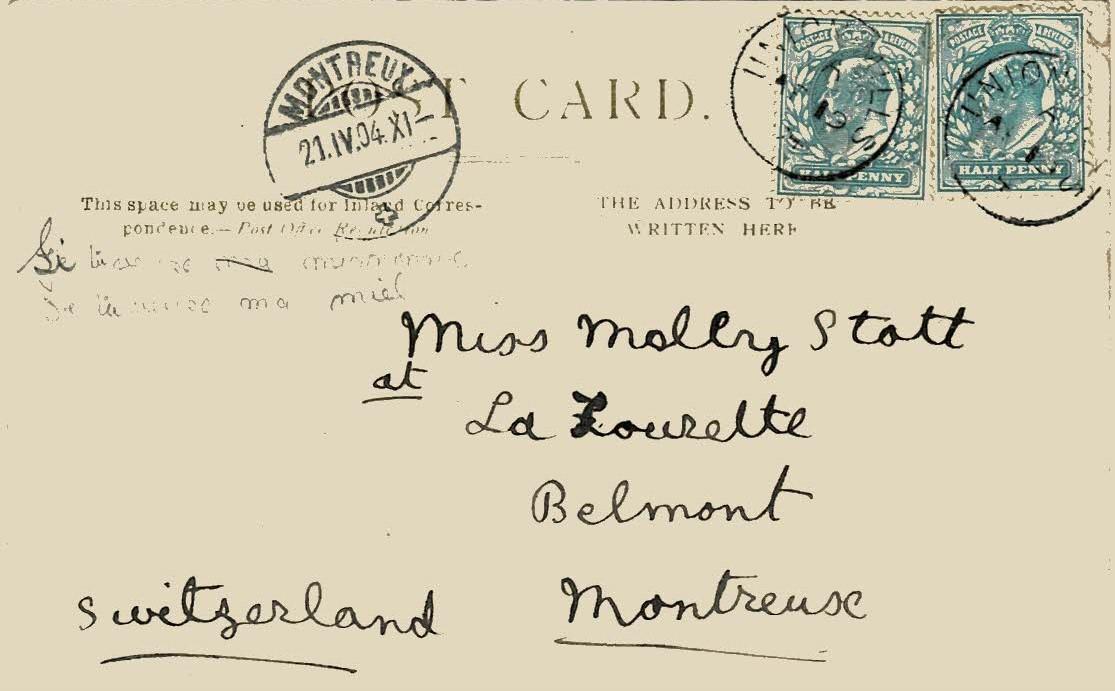 MONTREUX
21.IV.04.XI
ST CARD.
POSTAGE & REVENUE
HALF PENNY
POSTAGE & REVENUE
HALF PENNY
UNION
This space may be used for Inland Corres-
pondence.— Post Office Regulation
THE ADDRESS TO BE
WRITTEN HERE
ma
ma miel
Miss Molly Stott
at
La Tourelle
Belmont
Montreux
Switzerland